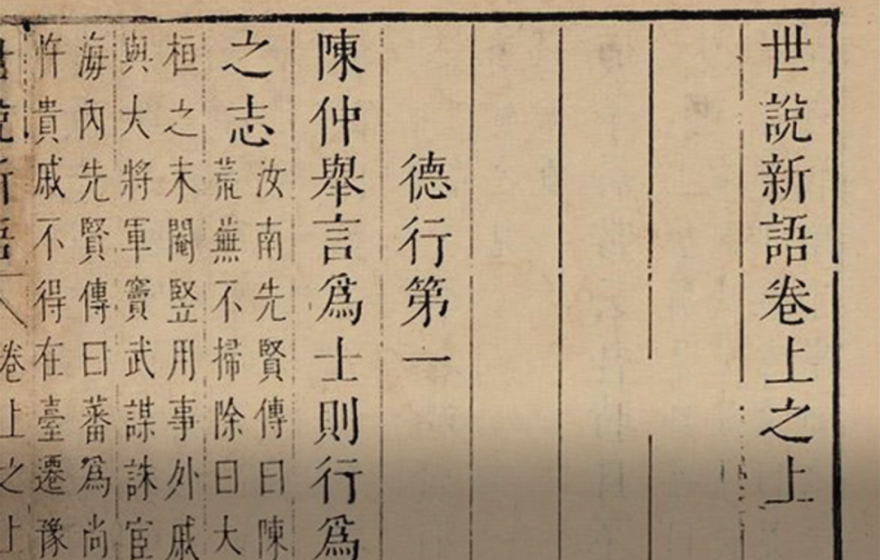 世說新語卷上之上
德行第一
陳仲舉言爲士則行爲
之志
汝南先賢傳曰陳
荒蕪不掃除曰大
桓之末閹豎用事外戚
與大將軍竇武謀誅宦
海內先賢傳曰蕃爲尚
忤貴戚不得在臺遷豫
世說新語 卷上之上